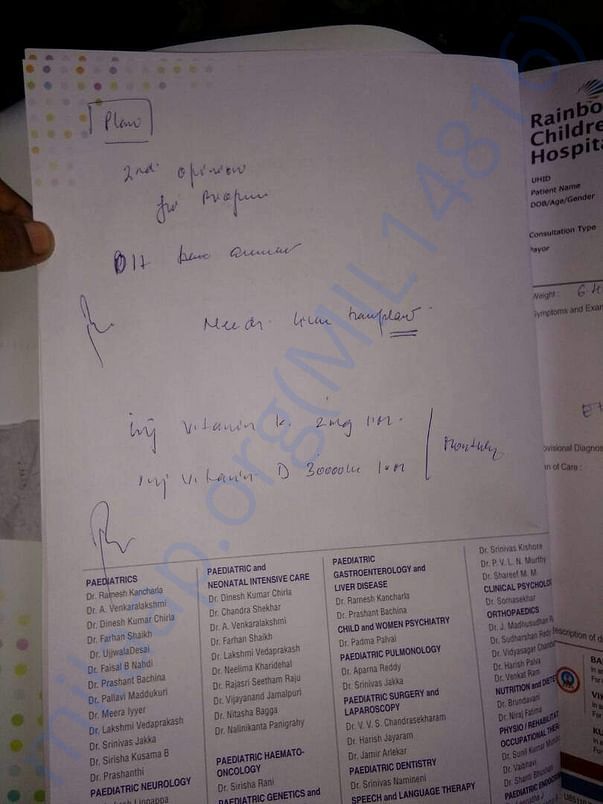 Plan
2nd opinion
for
Needs liver transplant
inj vitamin K 2mg
inj vitamin D 30000
Monthly
milaap.org(MIL14816)
PAEDIATRICS
Dr. Ramesh Kancharla
Dr. A. Venkaralakshmi
Dr. Dinesh Kumar Chirla
Dr. Farhan Shaikh
Dr. UjjwalaDesai
Dr. Faisal B Nahdi
Dr. Prashant Bachina
Dr. Pallavi Maddukuri
Dr. Meera Iyyer
Dr. Lakshmi Vedaprakash
Dr. Srinivas Jakka
Dr. Sirisha Kusama B
Dr. Prashanthi
PAEDIATRIC NEUROLOGY
Lingappa
PAEDIATRIC and
NEONATAL INTENSIVE CARE
Dr. Dinesh Kumar Chirla
Dr. Chandra Shekhar
Dr. A. Venkaralakshmi
Dr. Farhan Shaikh
Dr. Lakshmi Vedaprakash
Dr. Neelima Kharidehal
Dr. Rajasri Seetham Raju
Dr. Vijayanand Jamalpuri
Dr. Nitasha Bagga
Dr. Nalinikanta Panigrahy
PAEDIATRIC HAEMATO-
ONCOLOGY
Dr. Sirisha Rani
PAEDIATRIC GENETICS and
PAEDIATRIC
GASTROENTEROLOGY and
LIVER DISEASE
Dr. Ramesh Kancharla
Dr. Prashant Bachina
CHILD and WOMEN PSYCHIATRY
Dr. Padma Palvai
PAEDIATRIC PULMONOLOGY
Dr. Aparna Reddy
Dr. Srinivas Jakka
PAEDIATRIC SURGERY and
LAPAROSCOPY
Dr. V. V. S. Chandrasekharam
Dr. Harish Jayaram
Dr. Jamir Arlekar
PAEDIATRIC DENTISTRY
Dr. Srinivas Namineni
SPEECH and LANGUAGE THERAPY
Dr. Srinivas Kishore
Dr. P. V. L. N. Murthy
Dr. Shareef M. M.
CLINICAL PSYCHOL
Dr. Somasekhar
ORTHOPAEDICS
Dr. J. Madhusudhan R
Dr. Sudharshan Redy
Dr. Vidyasagar Chandan
Dr. Harish Palva
Dr. Venkat Ram
NUTRITION and DIETE
Dr. Brundavan
Dr. Niraj Fatima
PHYSIO / REHABILITAT
OCCUPATIONAL THER
Dr. Sunil Kumar
Dr. Vaibhavi
Dr. Shanti Bhushan
PAEDIATRIC ENDOCRIN
Rainbo
Children
Hospita
UHID
Patient Name
DOB/Age/Gender
Consultation Type
Payor
Weight :
Symptoms and Exam
ovisional Diagnos
n of Care :
escription of d